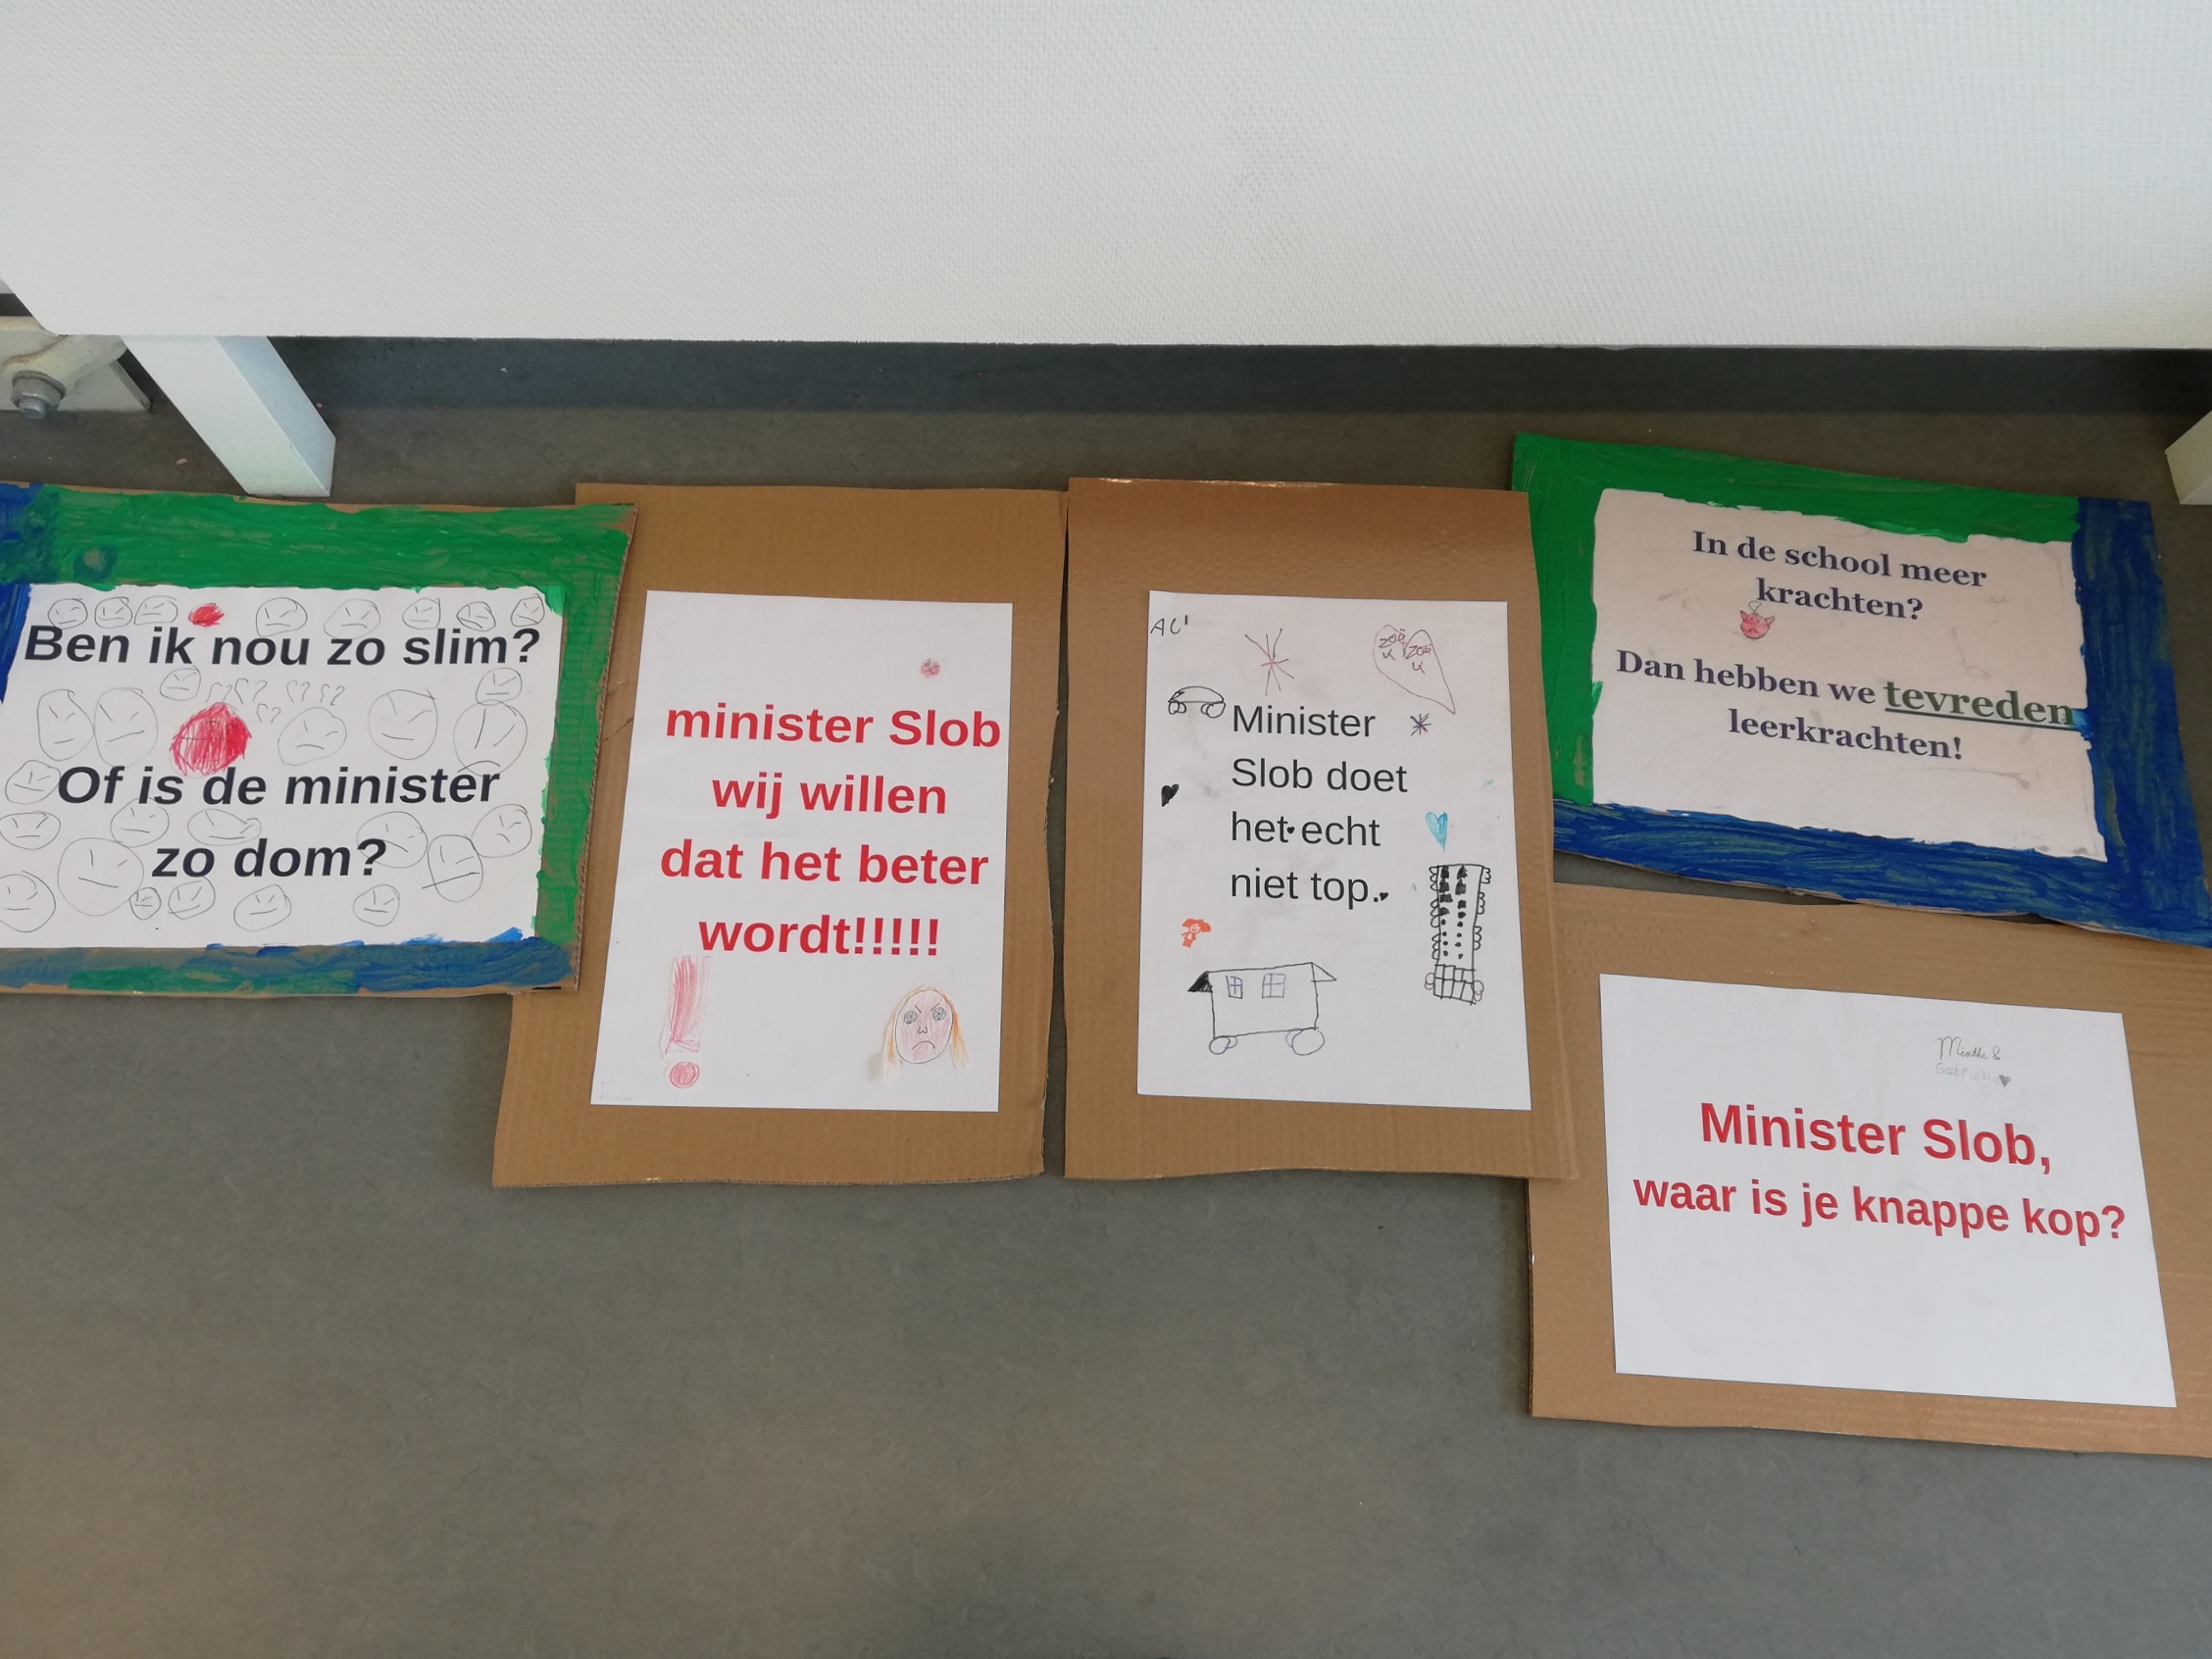 Ben ik nou zo slim?
Of is de minister
zo dom?
minister Slob
wij willen
dat het beter
wordt!!!!!
ALI
ZOË
ZOË
Minister
Slob doet
het echt
niet top.
In de school meer
krachten?
Dan hebben we tevreden
leerkrachten!
Minthe &
Minister Slob,
waar is je knappe kop?